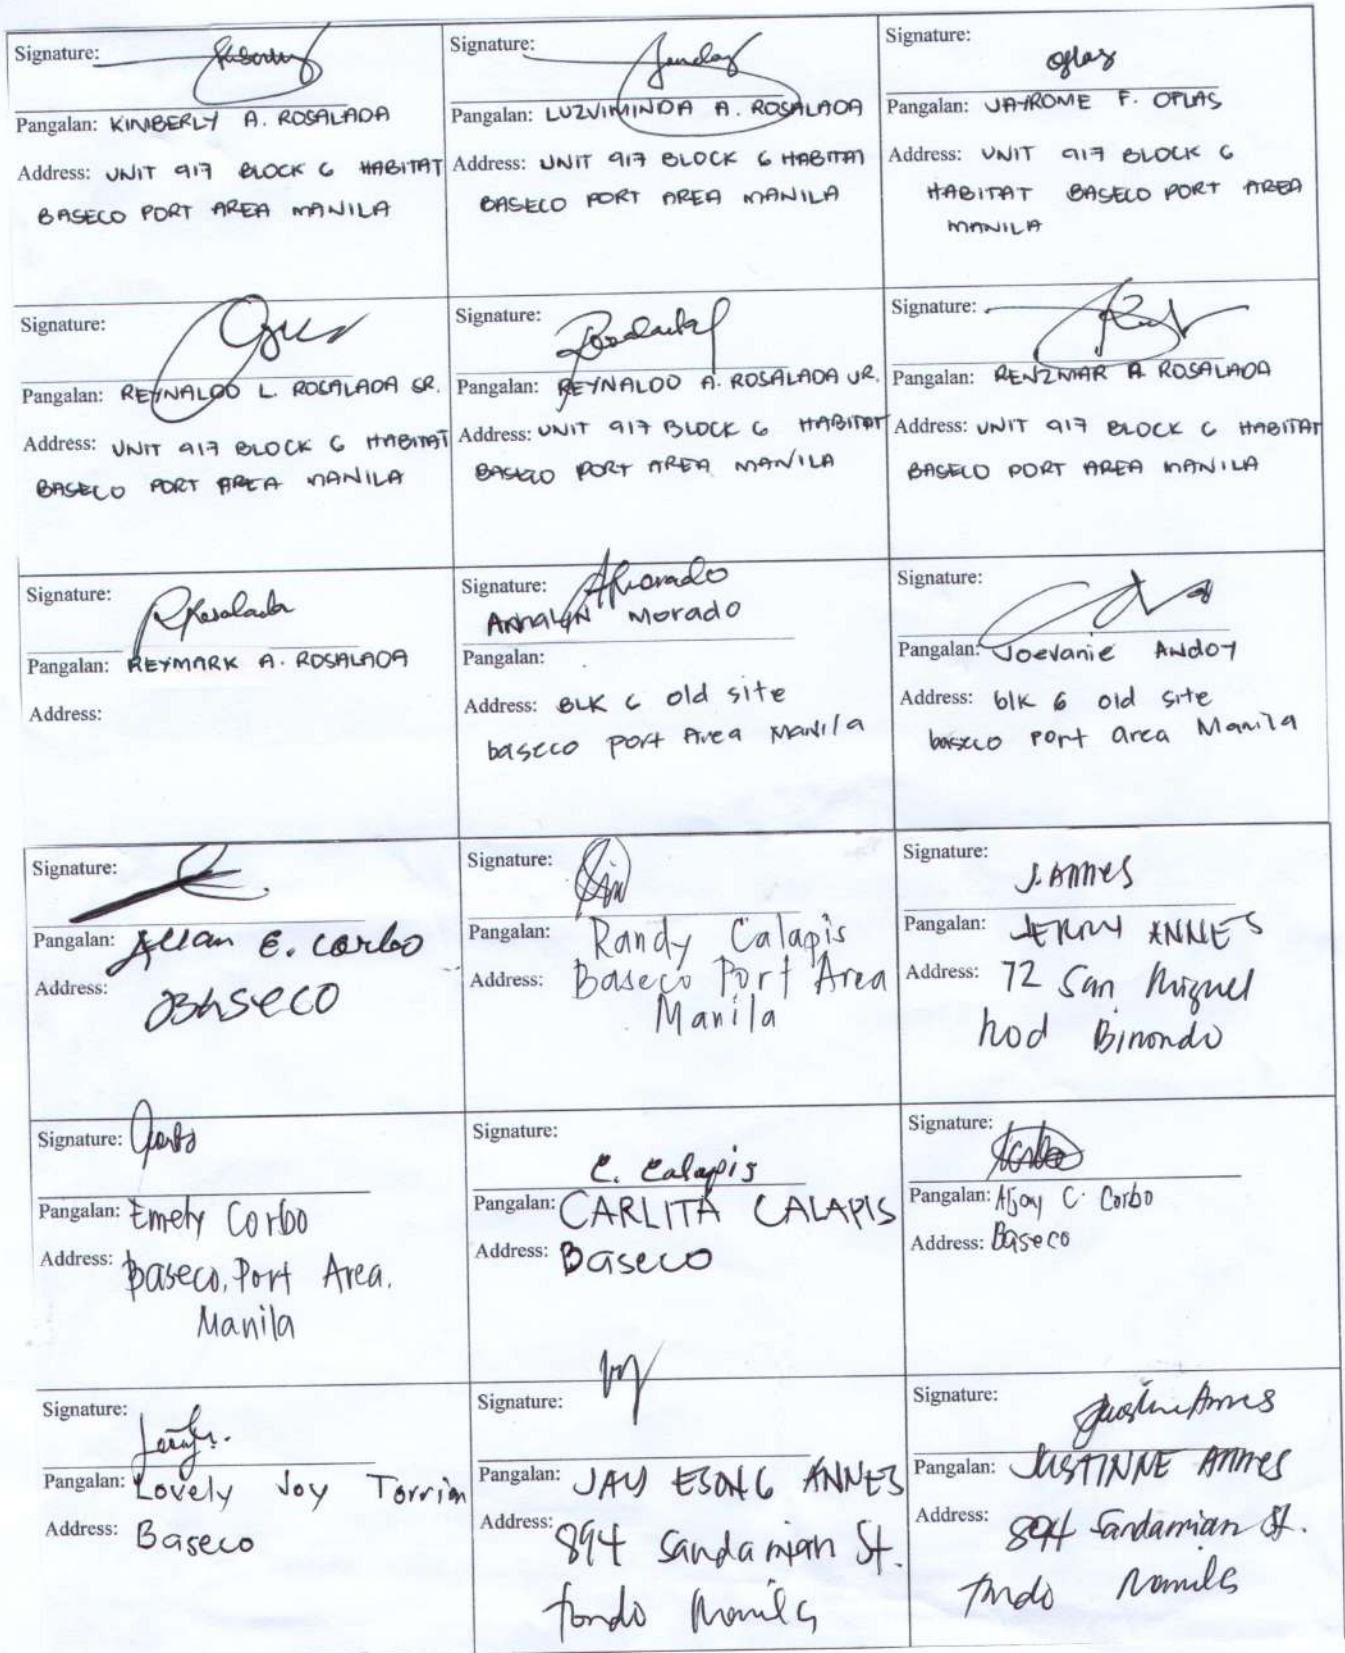 Signature:
Pangalan: KIMBERLY A. ROSALADA
Address: UNIT 917 BLOCK 6 HABITAT
BASECO PORT AREA MANILA
Signature:
Pangalan: LUZVIMINDA A. ROSALADA
Address: UNIT 917 BLOCK 6 HABITAT
BASECO PORT AREA MANILA
Signature: Oplas
Pangalan: JAYROME F. OPLAS
Address: UNIT 917 BLOCK 6
HABITAT BASECO PORT AREA
MANILA
Signature:
Pangalan: REYNALDO L. ROSALADA SR.
Address: UNIT 917 BLOCK 6 HABITAT
BASECO PORT AREA MANILA
Signature:
Pangalan: REYNALDO A. ROSALADA JR.
Address: UNIT 917 BLOCK 6 HABITAT
BASECO PORT AREA MANILA
Signature:
Pangalan: RENZMAR A. ROSALADA
Address: UNIT 917 BLOCK 6 HABITAT
BASECO PORT AREA MANILA
Signature: RRosalada
Pangalan: REYMARK A. ROSALADA
Address:
Signature: AMorado
Annalyn Morado
Pangalan:
Address: BLK 6 old site
baseco port Area Manila
Signature:
Pangalan: Joevanie Andoy
Address: blk 6 old site
baseco port area Manila
Signature:
Pangalan: Allan E. Corbo
Address: Baseco
Signature:
Pangalan: Randy Calapis
Address: Baseco Port Area
Manila
Signature: J. Annes
Pangalan: JERRY ANNES
Address: 72 San Miguel
Binondo
Signature:
Pangalan: Emely Corbo
Address: Baseco, Port Area.
Manila
Signature: C. Calapis
Pangalan: CARLITA CALAPIS
Address: Baseco
Signature:
Pangalan: Aljay C. Corbo
Address: Baseco
Signature:
Pangalan: Lovely Joy Torrim
Address: Baseco
Signature:
Pangalan: JAY ESONG ANNES
Address: 894 Sandamian St.
tondo Manila
Signature: Justinne Annes
Pangalan: JUSTINNE ANNES
Address: 894 Sandamian St.
Tondo Manila